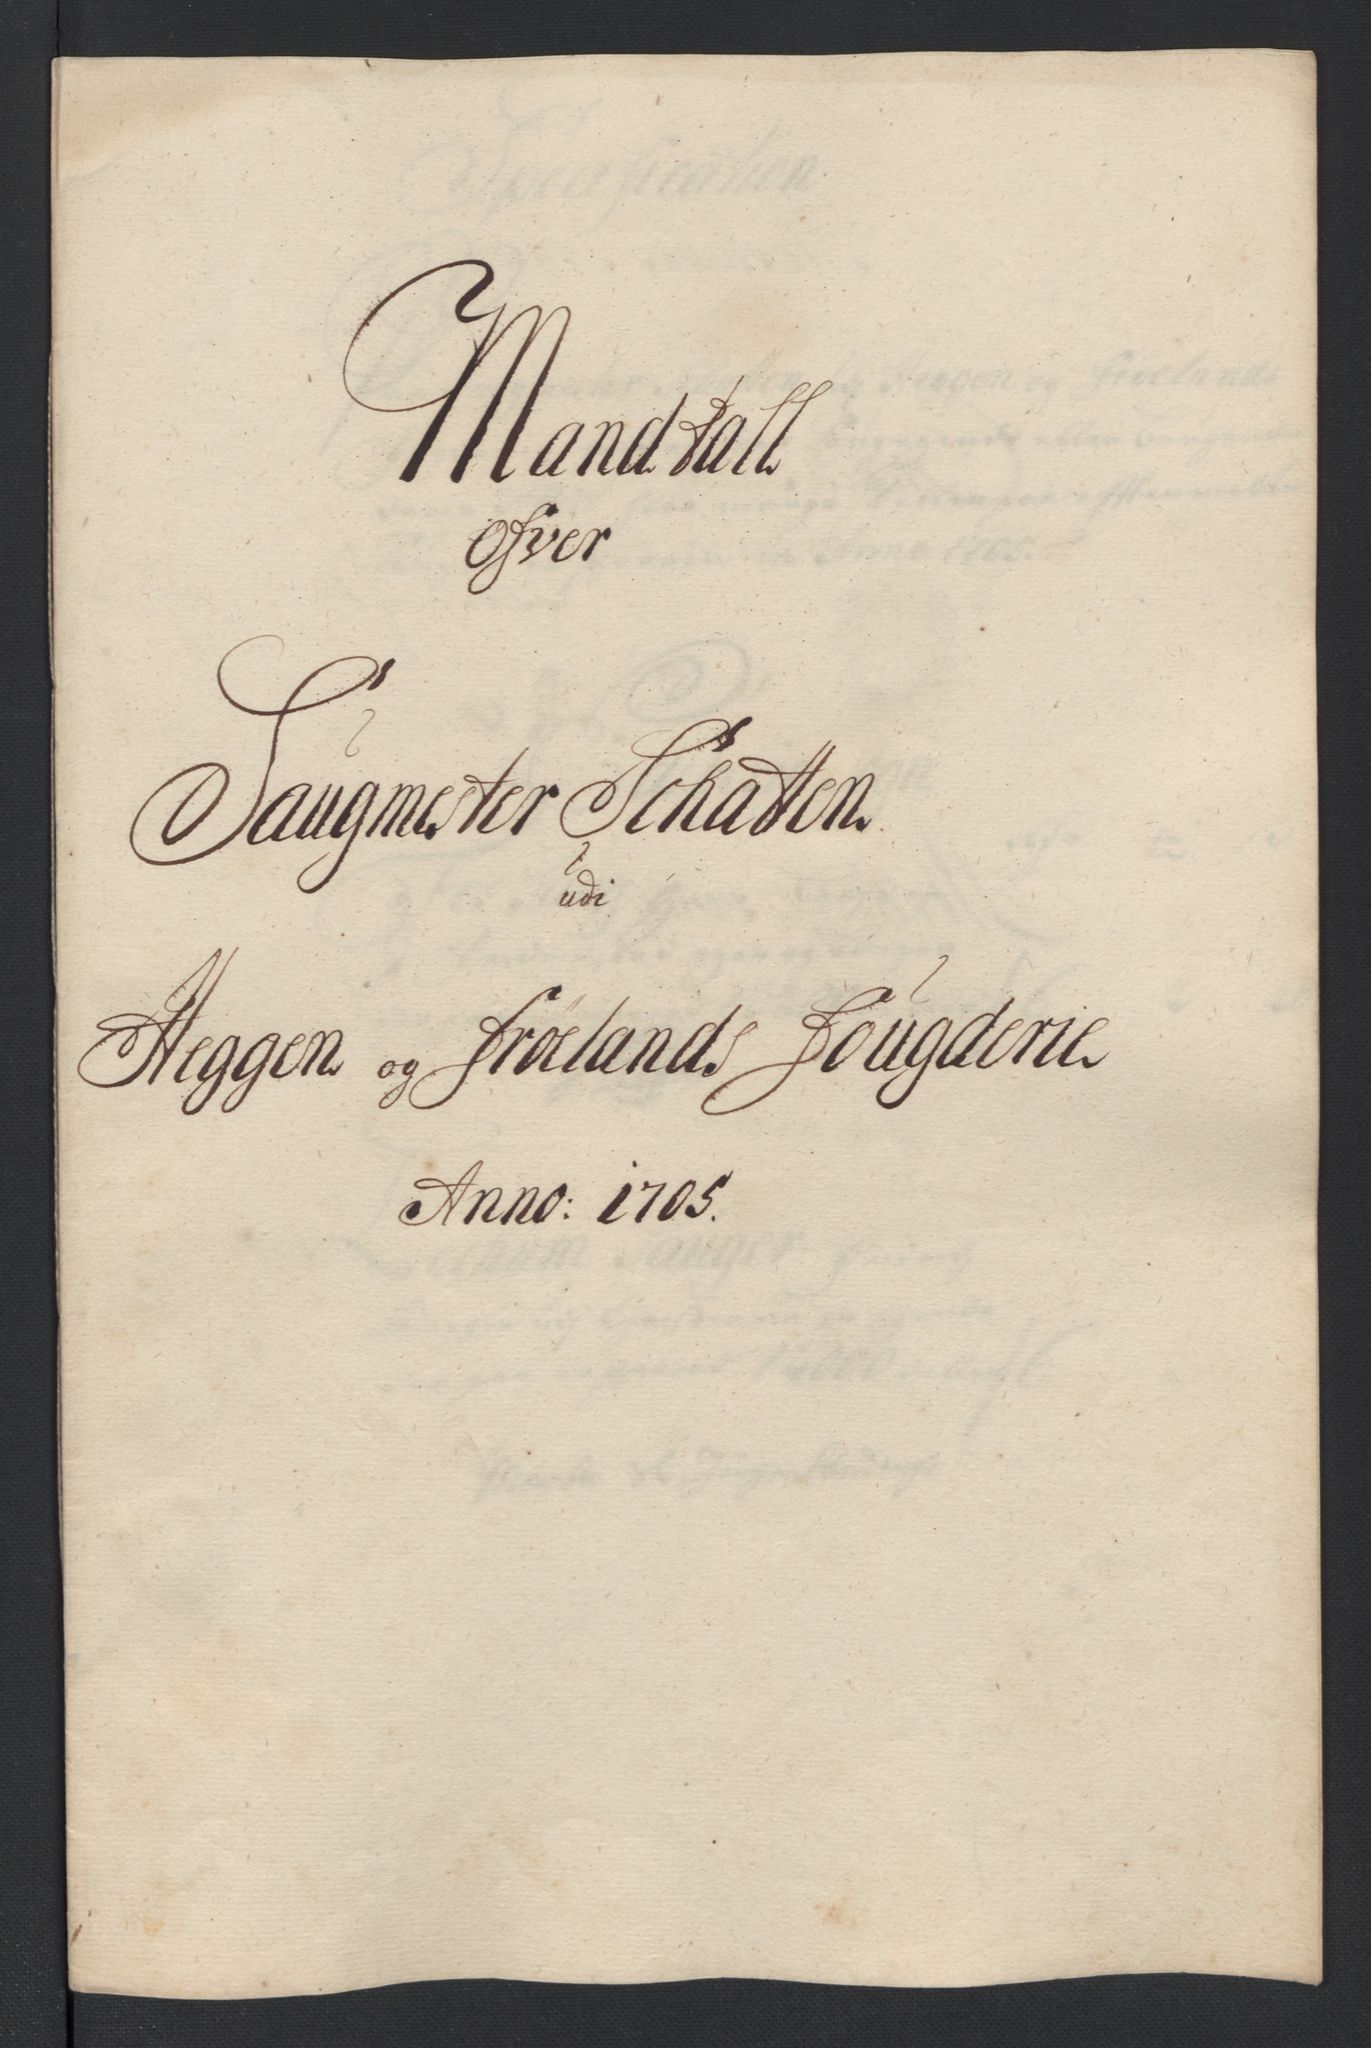 Mandtall
Ofver
Saugmester Schatten
udi
Heggen og Frøelands Fougderie
Anno: 1705.